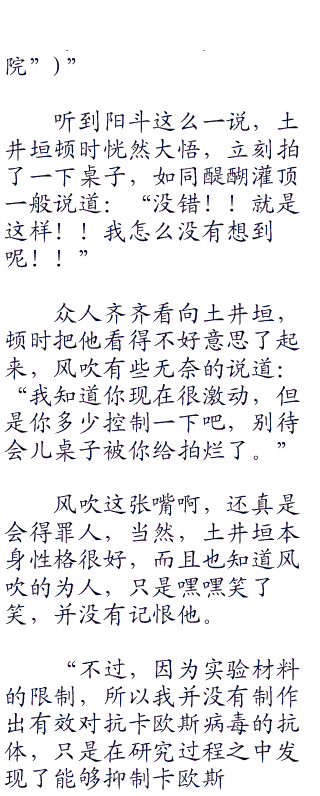 院”)”
听到阳斗这么一说，土
井垣顿时恍然大悟，立刻拍
了一下桌子，如同醍醐灌顶
一般说道：“没错！！就是
这样！！我怎么没有想到
呢！！”
众人齐齐看向土井垣，
顿时把他看得不好意思了起
来，风吹有些无奈的说道：
“我知道你现在很激动，但
是你多少控制一下吧，别待
会儿桌子被你给拍烂了。”
风吹这张嘴啊，还真是
会得罪人，当然，土井垣本
身性格很好，而且也知道风
吹的为人，只是嘿嘿笑了
笑，并没有记恨他。
“不过，因为实验材料
的限制，所以我并没有制作
出有效对抗卡欧斯病毒的抗
体，只是在研究过程之中发
现了能够抑制卡欧斯